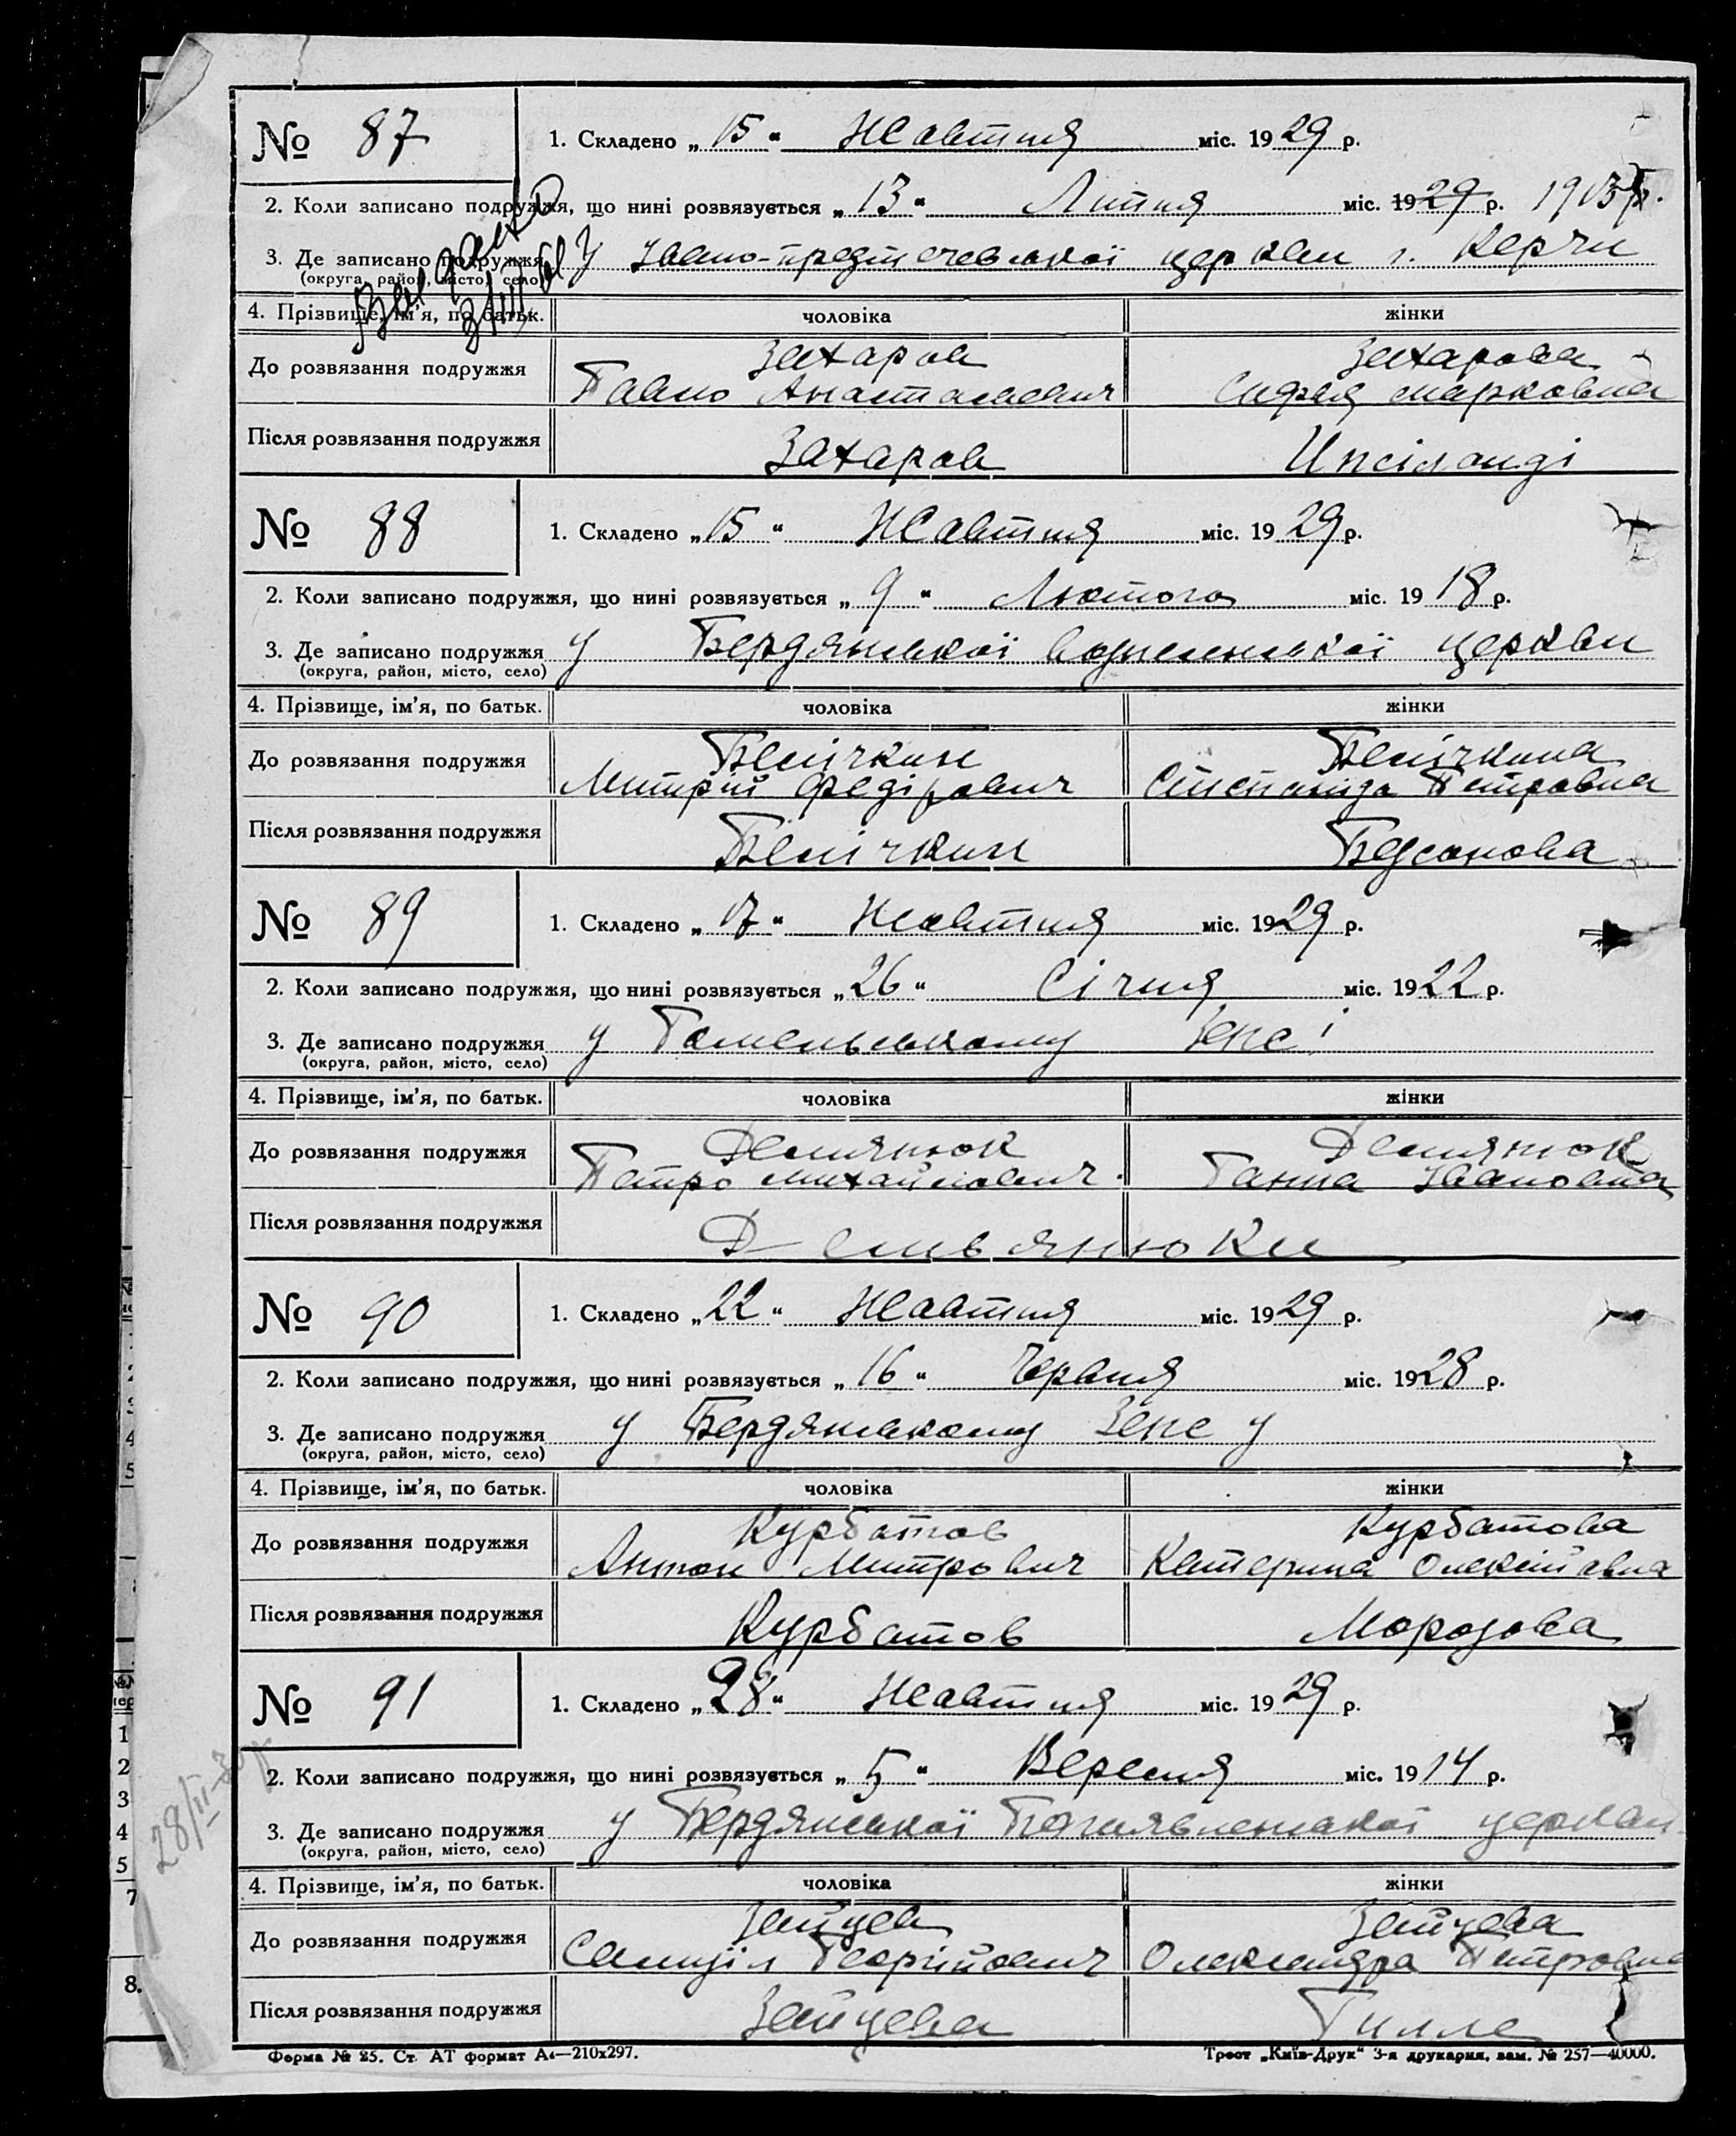 № 87
1. Складено „ 15 “ Жовтня міс. 1929 р.
2. Коли записано подружжя, що нині розвязується „ 13 “ Липня міс. 1929 р. 1913 р.
3. Де записано подружжя у Івано-предтечевської церкви г. Керчи
(округа, район, місто, село)
4. Прізвище, ім’я, по батьк. чоловіка жінки
До розвязання подружжя Захаров Захарова
Павло Анастасович Софія Марковна
Після розвязання подружжя Захаров Ипсіланді
№ 88
1. Складено „ 15 “ Жовтня міс. 1929 р.
2. Коли записано подружжя, що нині розвязується „ 9 “ Лютого міс. 1918 р.
3. Де записано подружжя у Бердянської церкви
(округа, район, місто, село)
4. Прізвище, ім’я, по батьк. чоловіка жінки
До розвязання подружжя
Митрій Федірович Степанида Петровна
Після розвязання подружжя Бедсонова
№ 89
1. Складено „ 17 “ Жовтня міс. 1929 р.
2. Коли записано подружжя, що нині розвязується „ 26 “ Січня міс. 1922 р.
3. Де записано подружжя у Гомельському Загсі
(округа, район, місто, село)
4. Прізвище, ім’я, по батьк. чоловіка жінки
До розвязання подружжя Демянюк Демянюк
Петро Михайлович Ганна Івановна
Після розвязання подружжя Демьянюки
№ 90
1. Складено „ 22 “ Жовтня міс. 1929 р.
2. Коли записано подружжя, що нині розвязується „ 16 “ Червня міс. 1928 р.
3. Де записано подружжя у Бердянському Загсу
(округа, район, місто, село)
4. Прізвище, ім’я, по батьк. чоловіка жінки
До розвязання подружжя Курбатов Курбатова
Антон Митрович Катерина Олексіївна
Після розвязання подружжя Курбатов Морозова
№ 91
1. Складено „ 28 “ Жовтня міс. 1929 р.
2. Коли записано подружжя, що нині розвязується „ 5 “ Вересня міс. 1914 р.
3. Де записано подружжя у Бердянської церкви
(округа, район, місто, село)
4. Прізвище, ім’я, по батьк. чоловіка жінки
До розвязання подружжя Зайцев Зайцева
Самуїл Георгійович Олександра Петровна
Після розвязання подружжя Зайцева Гилле
Форма № 25. Ст. АТ формат А4—210х297. Трест „Київ-Друк“ 3-я друкарня, зам. № 257—40000.